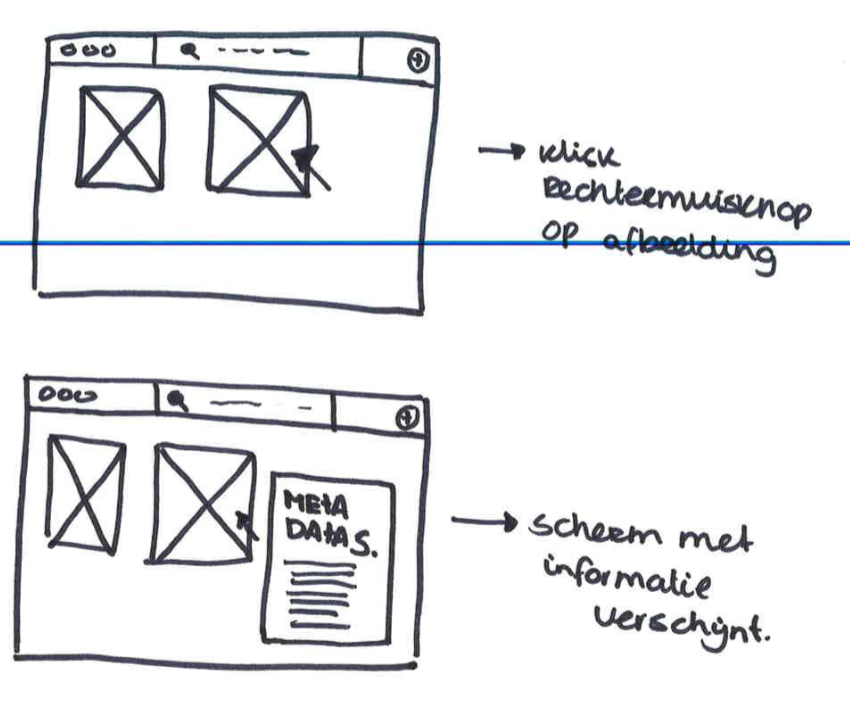 klick
Rechtermuisknop
op afbeelding
META
DATAS.
scherm met
informatie
verschijnt.